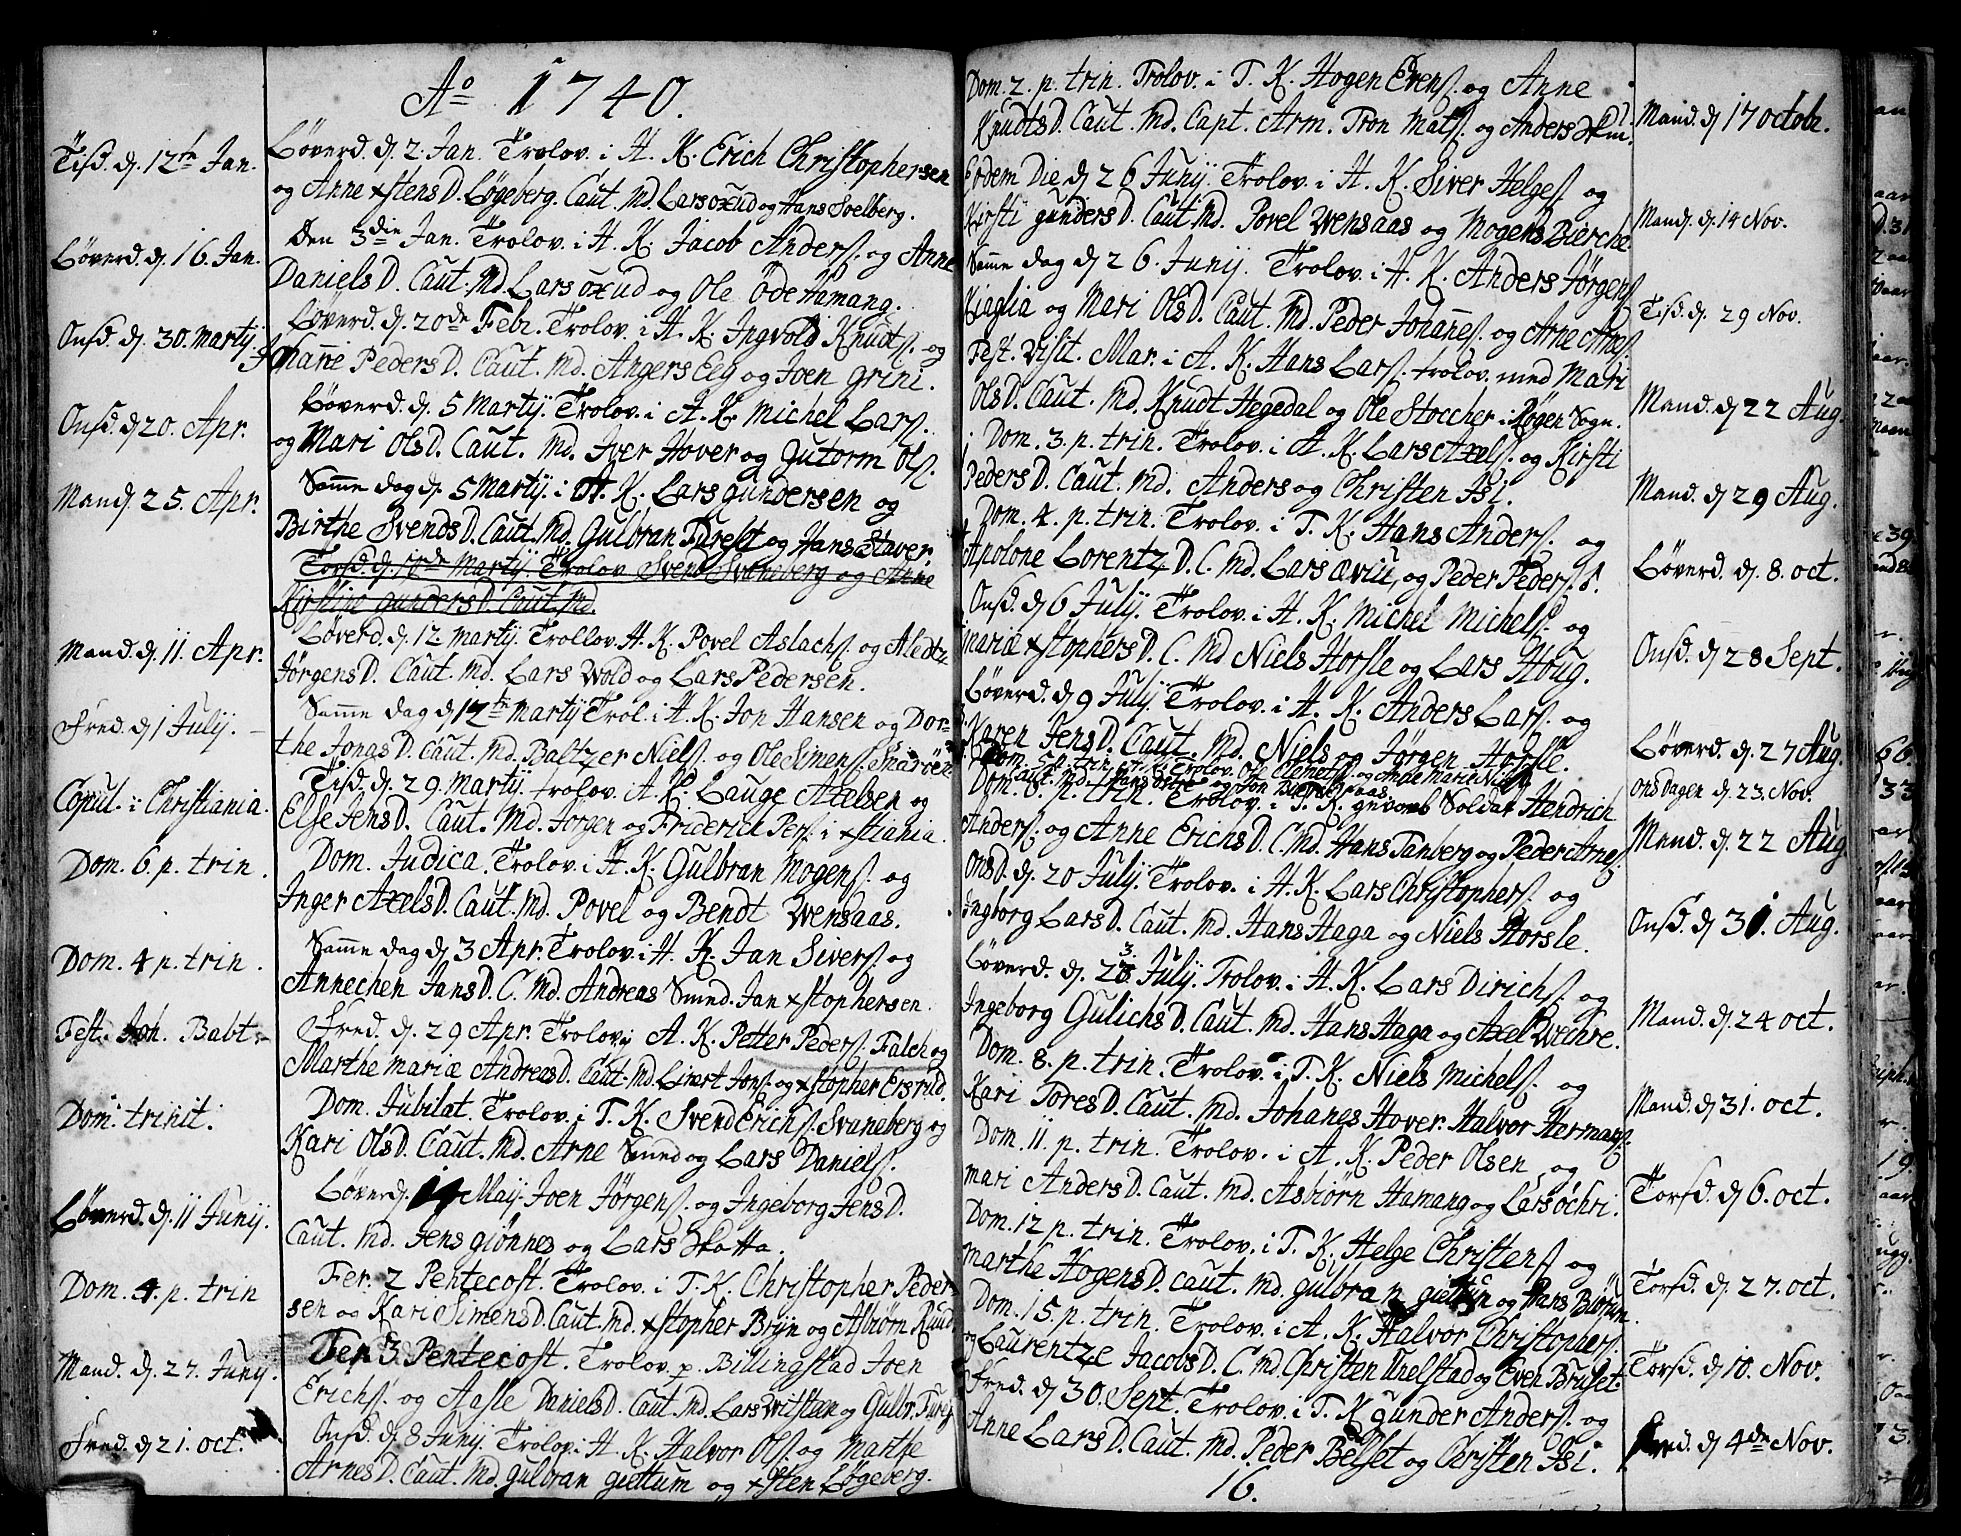 Ao 1740.
Tisd. d. 12te Jan.
Løverd. d. 2. Jan. Trolov. i H. K. Erich Christophersen
og Anne xstens D. Løgeberg. Caut. Md. Lars oxud og Hans Soelberg.
Løverd. d. 16. Jan.
Den 3die Jan. Trolov. i H. K. Jacob Anders. og Anne
Daniels D. Caut. Md. Lars oxud og Ole Öde Hamang.
Onsd. d. 30. Martij.
Løverd. d. 20de Febr. Trolov. i H. K. Ingvold Knuds. og
Johanne Peders D. Caut. Md. Angers Eeg og Joen Grini.
Onsd. d 20. Apr.
Løverd. d. 5 Martij. Trolov. i H. K. Michel Lars.
og Mari Ols D. Caut. Md. Iver Hover og Gutorm Ols.
Mand. 25. Apr.
Samme dag d. 5 Martij. i H. K. Lars Gundersen og
Birthe Svends D. Caut. Md. Gulbran Furest og Hans Staver
Torsd. d. 10de Martij. Trolov Svend Svaneberg og Anne
Kirstine Gunders D. Caut. Md.
Mand. d. 11. Apr.
Løverd. d. 12. Martij. Trollov. H. K. Povel Aslachs. og Aledtz
Jørgens D. Caut. Md. Lars Wold og Lars Pedersen.
Fred. d 1 Julij.
Samme dag d 12te Martij Trol. i H. K. Jon Hansen og Dor-
the Jonas D. Caut. Md. Baltzer Niels. og Ole Simens. Snaröen
Copul. i Christiania.
Tisd. d. 29. Martij. trolov. i A. K. Lauge Axelsen og
Else Jens D. Caut. Md. Jørgen og Friderich Pers. i xstiania.
Dom. 6. p. trin.
Dom. Judica. Trolov. i H. K. Gulbran Mogens. og
Inger Axels D. Caut. Md. Povel og Bendt Wensaas.
Dom. 4 p. trin.
Samme dag d 3 Apr. Trolov. i H. K. Jan Sivers. og
Annechen Jans D. C. Md. Andreas Smed. Jan xstophersen.
Fest. Joh. Babt.
Fred. d. 29 Apr. Trolov. i A. K. Petter Peders. Falch og
Marthe Mariæ Andreas D. Caut. Md. Livert Jons. og xstopher Ersrud.
Dom. trinit.
Dom. Jubilat. Trolov. i T. K. Svend Erichs. Svaneberg og
Kari Ols D. Caut. Md. Arne Smed og Lars Daniels.
Løverd. d. 11 Junij.
Løverd. 14 Maij Joen Jørgens. og Ingeborg Jens D.
Caut. Md. Jens Giønnes og Lars Skotta.
Dom. 4. p. trin
Fer. 2 Pentecost. Trolov. i T. K. Christopher Peder-
sen og Kari Simens D. Caut. Md. xstopher Brijn og Asbiørn Rud
Mand. d. 27. Junij.
Fer. 3 Pentecost. Trolov. p. Billingstad Joen
Erichs. og Aasle Daniels D. Caut. Md. Lars Witstan og Gulbr. Fures
Fred. d 21. oct.
Onsd. d 8 Junij. Trolov. i H. K. Halvor Ols. og Marthe
Arnes D. Caut. Md. Gulbran Giettum og xsten Løgeberg.
Dom. 2. p. trin. Trolov. i T. K. Hogen Evens. og Anne
Knudts D. Caut. Md. Capt. Arm. Tron Mats. og Anders Skui.
Mand. d 17 octob.
Eodem Die d 26 Junij. Trolov. i H. K. Siver Helges. og
Kirsti Gunders D. Caut. Md. Povel Wensaas og Mogens Bierche
Mand. d. 14 Nov.
Samme dag d 26. Junij. Trolov. i H. K. Anders Jørgens.
Kiaglia og Mari Ols D. Caut. Md. Peder Johannes. og Arne Arnes.
Tisd. d. 29 Nov.
Fest. Visit. Mar. i A. K. Hans Lars. trolov. med Mari
Ols D. Caut. Md. Knudt Hegedal og Ole Stoccher i Røgen Sogn.
Mand. d 22 Aug.
Dom. 3. p. trin. Trolov. i H. K. Lars Axels. og Kirsti
Peders D. Caut. Md. Anders og Christen Isi.
Mand. d 29 Aug.
Dom. 4. p. trin. Trolov. i T. K. Hans Anders. og
Apolone Lorentz D. C. Md. Lars Ævie, og Peder Peders. S.
Løverd. d. 8. oct.
Onsd. d 6 Julij. Trolov. i H. K. Michel Michels. og
Mariæ xstophers D. C. Md Niels Horsle og Lars Houg.
Onsd. d 28 Sept.
Løverd. d 9 Julij. Trolov. i H. K. Anders Lars. og
Karen Jens D. Caut. Md. Niels og Jørgen Horsle.
Løverd. d. 27 Aug.
Dom. 5te p. trin. Trolov. Ole Clemets. og Anne Marie Niels
onsdagen d. 23. Nov.
Dom. 6. p. trin. Trolov. i T. K. gevorb Soldat Hendrich
Anders. og Anne Erichs D. C. Md. Hans Tanberg og Peder Arnes.
Mand. d 22 Aug
Onsd. d. 20 Julij. Trolov. i H. K. Lars Christophers. og
Ingborg Lars D. Caut. Md. Hans Haga og Niels Horsle.
Onsd. d 31. Aug.
Løverd. d. 23 Julij. Trolov. i H. K. Lars Dirichs. og
Ingeborg Gulichs D. Caut. Md. Hans Haga og Axel Wehre.
Mand. d. 24 oct.
Dom. 8. p. trin. Trolov. i T. K. Niels Michels. og
Kari Tores D. Caut. Md. Johanes Hover. Halvor Hermans.
Mand. d 31. oct.
Dom. 11. p. trin. Trolov. i A. K. Peder Olsen og
Mari Anders D. Caut. Md. Asbiørn Hamang og Lars Øchri.
Torsd. d 6. oct.
Dom. 12 p. trin. Trolov. i T. K. Helge Christens. og
Marthe Hogens D. Caut. Md. Gulbran Giettum og Hans Biørum
Torsd. d. 27. oct.
Dom. 15. p. trin. Trolov. i A. K. Halvor Christophers.
og Laurentze Jacobs D. C. Md Christen Thelstad og Even Bruset.
Torsd. d 10. Nov.
Fred. d 30. Sept. Trolov. i T. K Gunder Anders. og
Anne Lars D. Caut. Md. Peder Belset og Christen Isi.
Fred. d 4de Nov.
16.